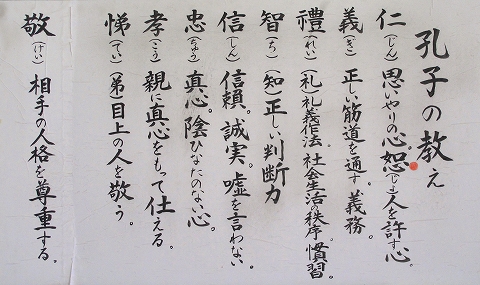 孔子の教え
仁(じん)思いやりの心。恕(じょ)人を許す心。
義(ぎ)正しい筋道を通す。義務。
禮(れい)(礼)礼義作法。社会生活の秩序。慣習。
智(ち)(知)正しい判断力
信(しん)信頼。誠実。嘘を言わない。
忠(ちゅう)真心。陰ひなたのない心。
孝(こう)親に真心をもって仕える。
悌(てい)(弟)目上の人を敬う。
敬(けい)相手の人格を尊重する。